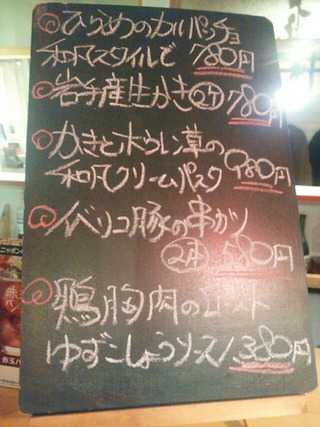 ひらめのカルパッチョ
和風スタイルで 780円
岩手産生かき2コ 780円
かきとホウレン草の
和風クリームパスタ 980円
イベリコ豚の串カツ
2本 580円
鶏胸肉のロースト
ゆずこしょうソース 1,380円